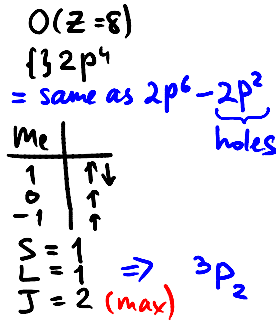 O(Z=8)
{}2p⁴
= same as 2p⁶-2p²
holes
Me
1 ↑↓
0 ↑
-1 ↑
S = 1
L = 1 ⇒ ³P₂
J = 2 (max)